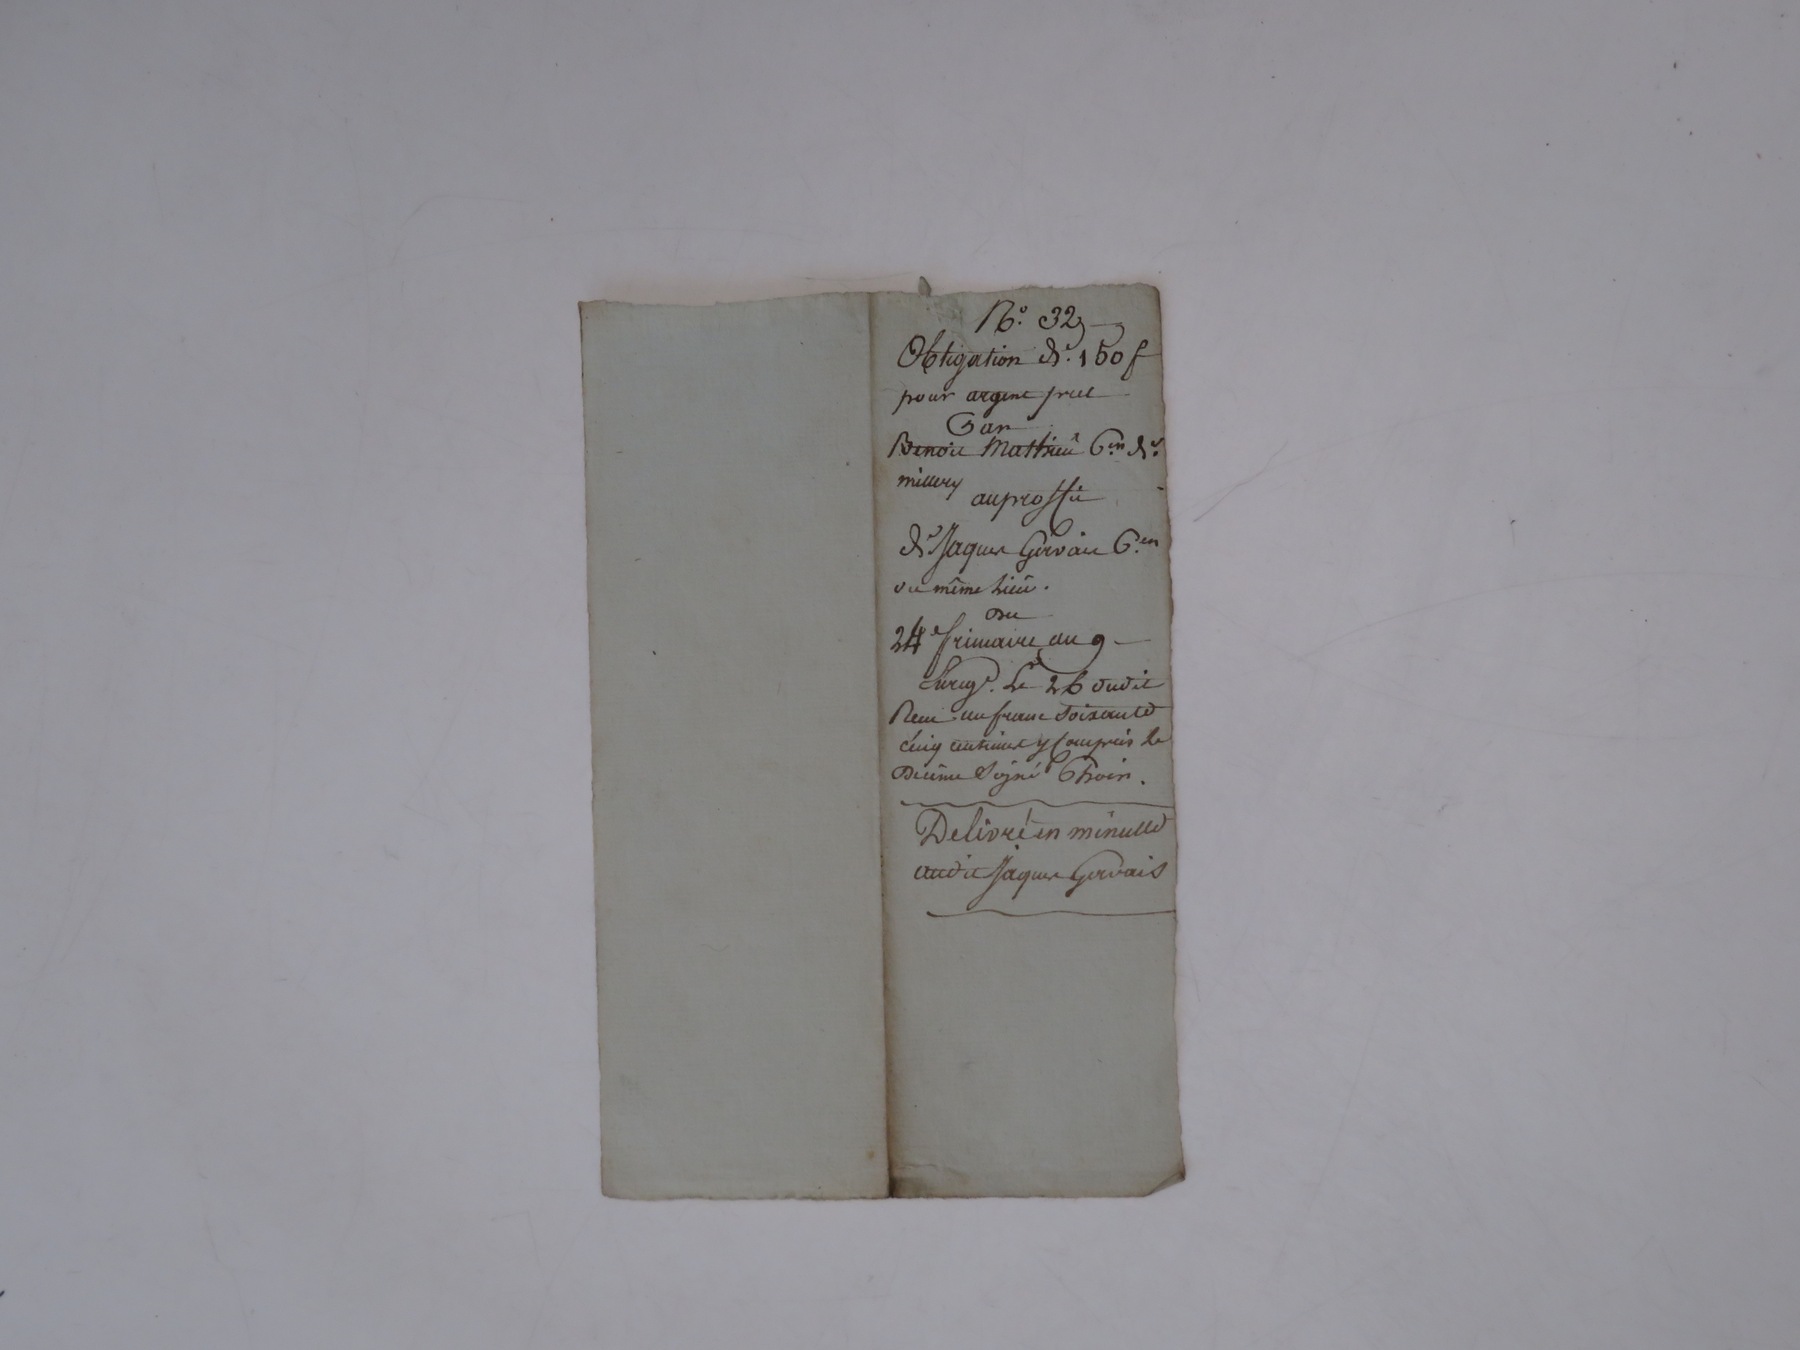 N.° 32
Obligation de 150 f
pour argent pret
Par
Benoit Mathieu C.en de
millery
au proffit
de Jaques Gervais C.en
du même lieu.
Du
24 frimaire an 9
Enreg.é Le 26 dudit
Recu un franc soixante
cinq centimes y compris le
Decime signé Choin.
Delivré en minutte
audit Jaques Gervais